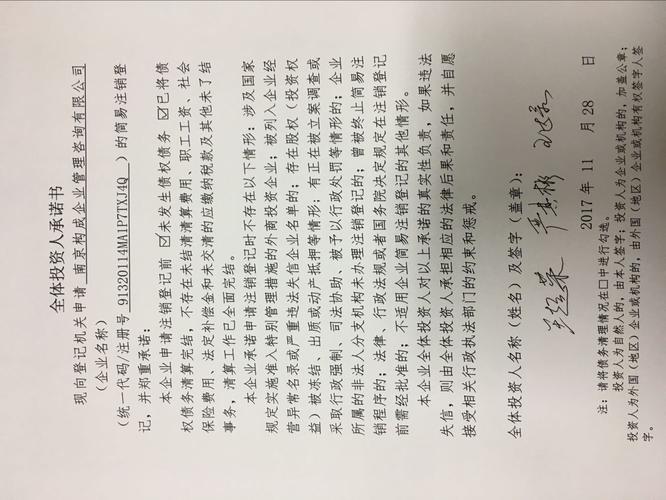 全体投资人承诺书
现向登记机关申请 南京构成企业管理咨询有限公司
（企业名称）
（统一代码/注册号 91320114MA1P7TXJ4Q ）的简易注销登
记，并郑重承诺：
本企业申请注销登记前 ☑未发生债权债务 ☑已将债
权债务清算完结，不存在未结清清算费用、职工工资、社会
保险费用、法定补偿金和未交清的应缴纳税款及其他未了结
事务，清算工作已全面完结。
本企业承诺申请注销登记时不存在以下情形：涉及国家
规定实施准入特别管理措施的外商投资企业；被列入企业经
营异常名录或严重违法失信企业名单的；存在股权（投资权
益）被冻结、出质或动产抵押等情形；有正在被立案调查或
采取行政强制、司法协助、被予以行政处罚等情形的；企业
所属的非法人分支机构未办理注销登记的；曾被终止简易注
销程序的；法律、行政法规或者国务院决定规定在注销登记
前需经批准的；不适用企业简易注销登记的其他情形。
本企业全体投资人对以上承诺的真实性负责，如果违法
失信，则由全体投资人承担相应的法律后果和责任，并自愿
接受相关行政执法部门的约束和惩戒。
全体投资人名称（姓名）及签字（盖章）：
2017 年 11 月 28 日
注：请将债务清理情况在□中进行勾选。
投资人为自然人的，由本人签字；投资人为企业或机构的，加盖公章；
投资人为外国（地区）企业或机构的，由外国（地区）企业或机构有权签字人签
字。